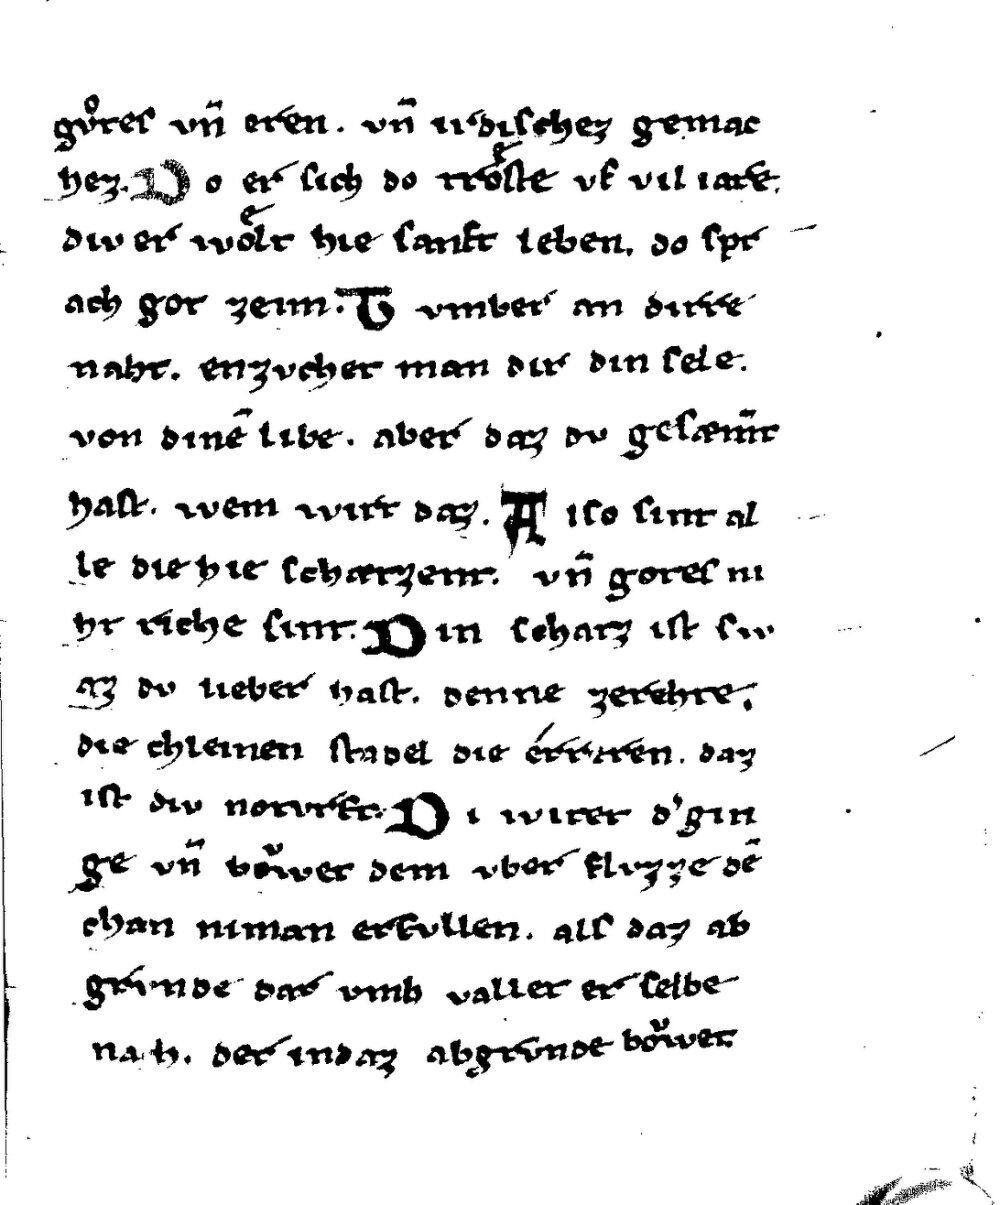 gůtes vn̄ eren. vn̄ irdischez gemac
hez. Do er sich do troͤste vf vil iare.
div er woͤlt hie sanft leben. do spr
ach got zeim. Tvmber an dirre
naht. enzvchet man dir din sele.
von dinē libe. aber daz dv gesæm̄t
hast. wem wirt daz. Also sint al
le die hie schærzent. vn̄ gotes ni
ht riche sint. Din scharz ist sw
az dv lieber hast. denne zerehte.
die chleinen stadel die érreren. daz
ist div notvrft. Di witer d'gin
ge vn̄ boͮwet dem vber flvzze dē
chan niman erfvllen. als daz ab
grvnde dar vmb vallet er selbe
nah. der indaz abgrvnde boͮwet